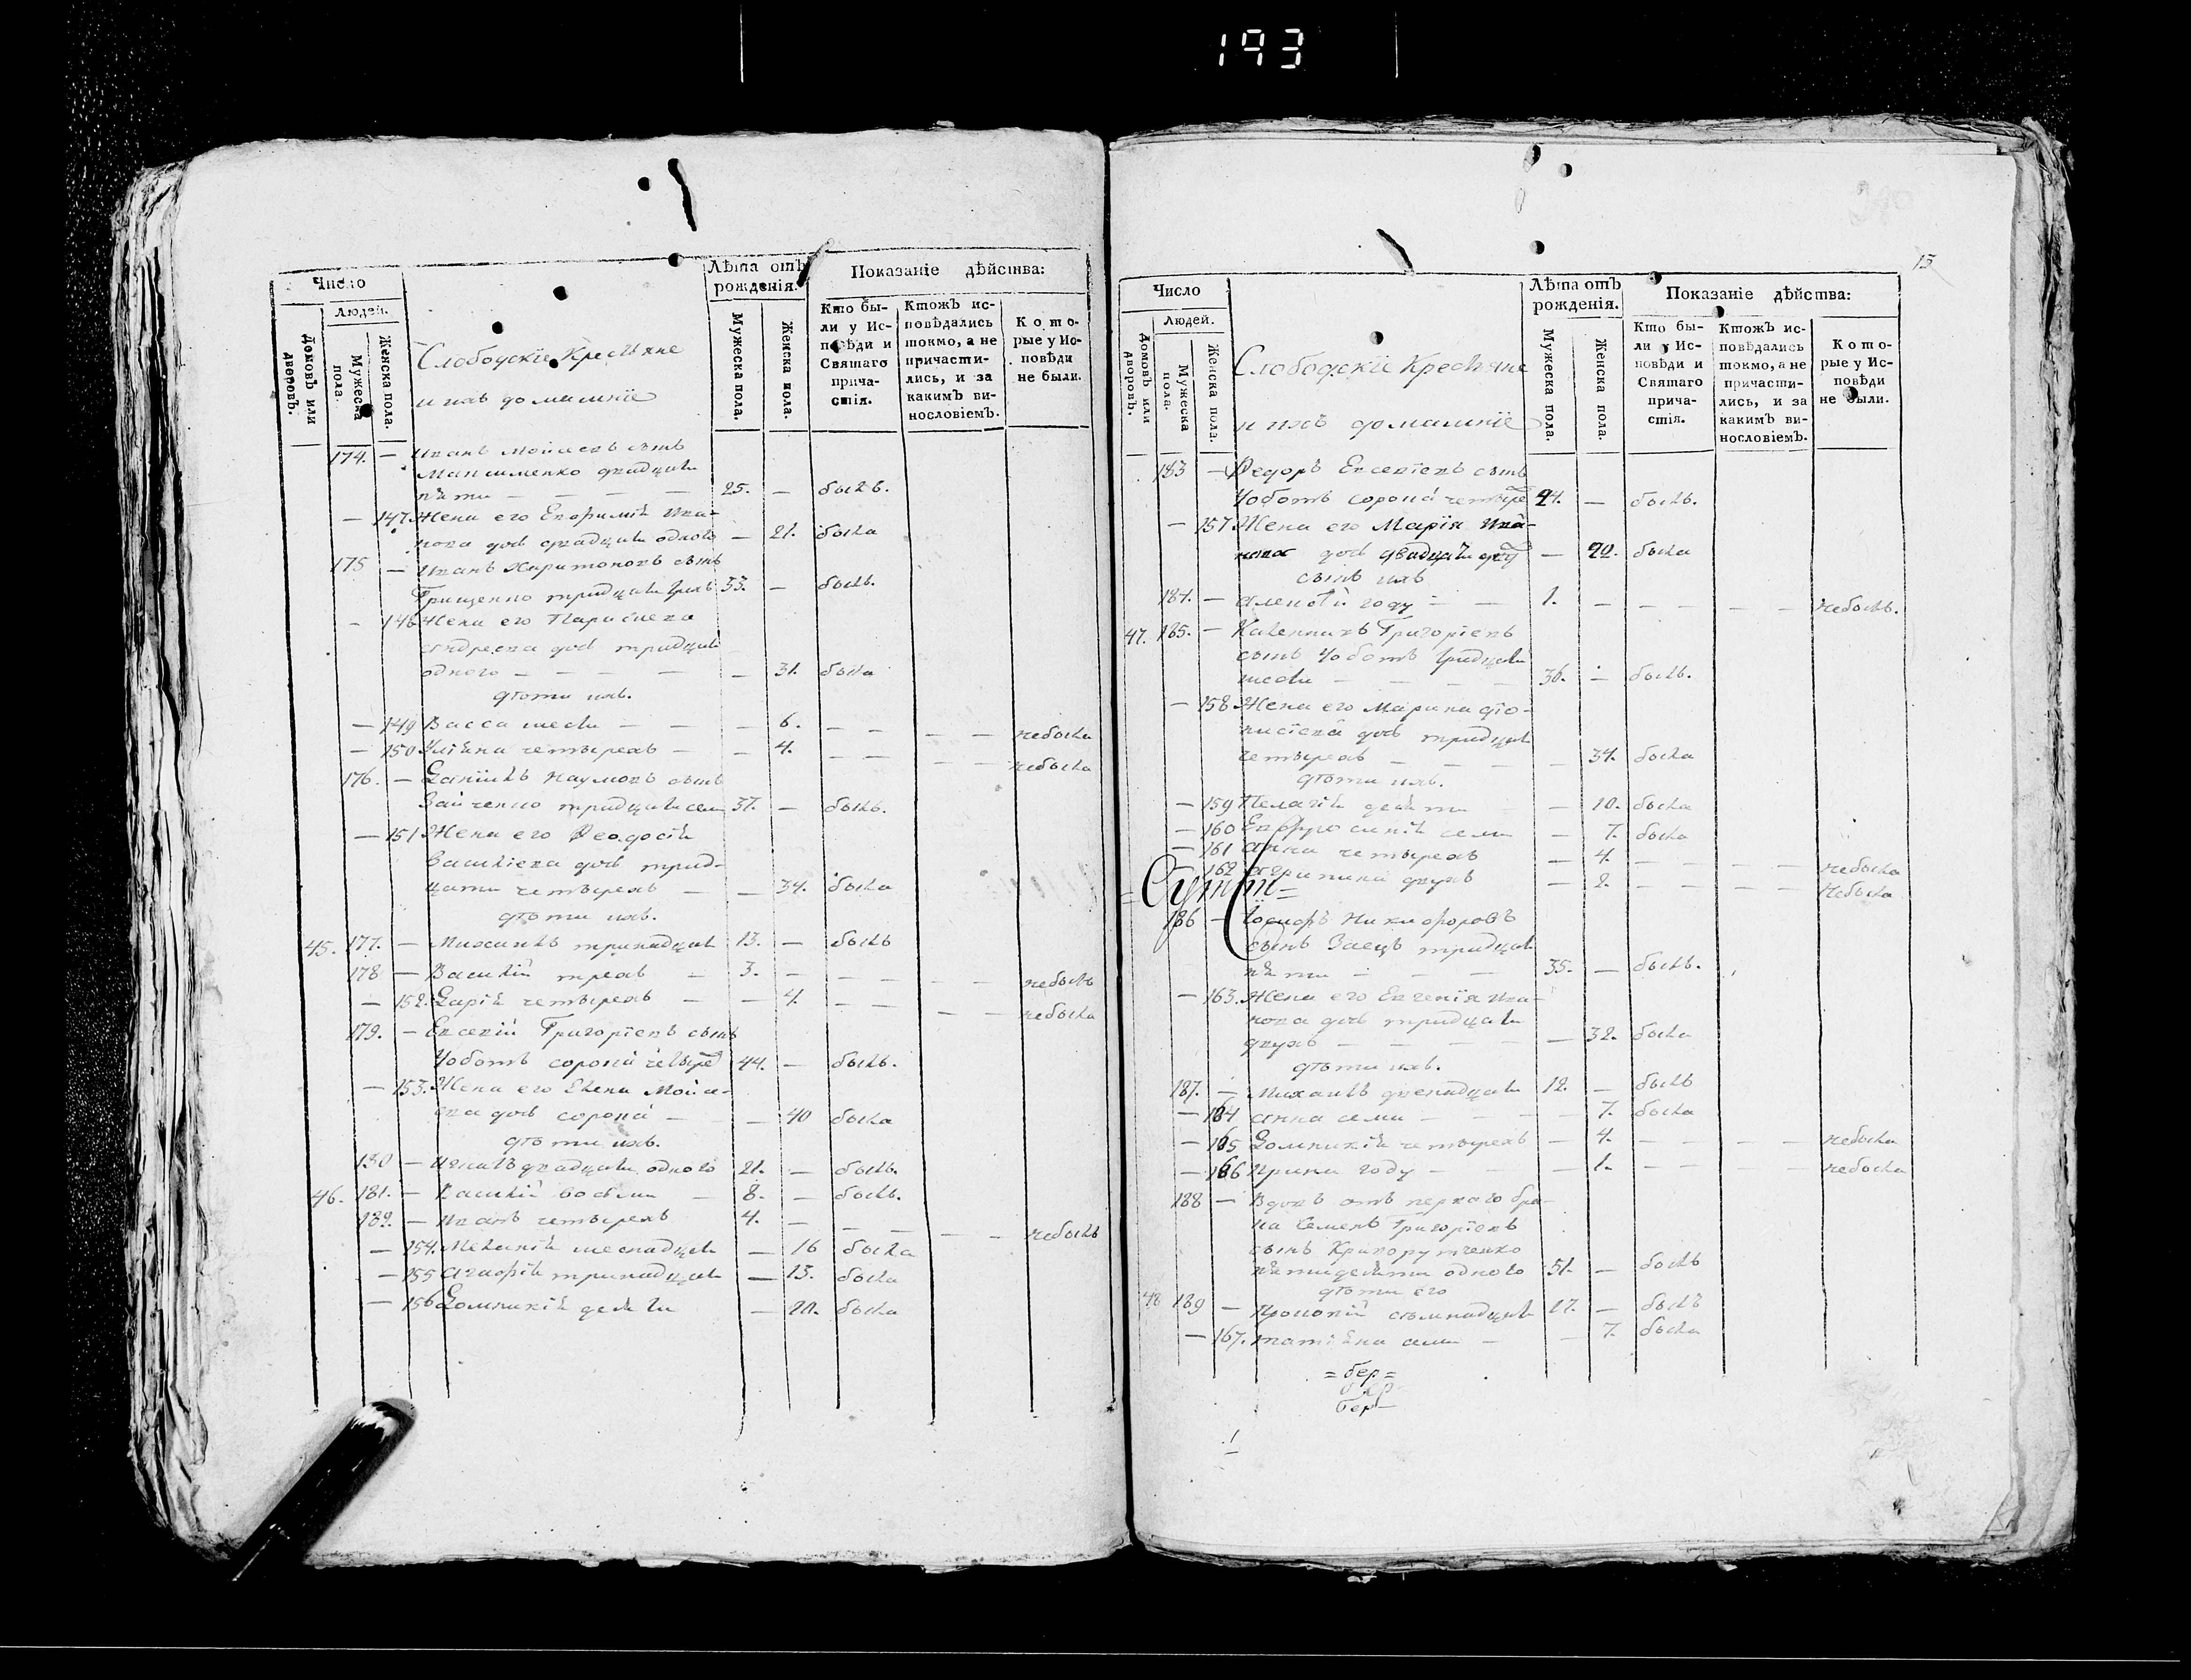 193
Число
Людей.
Домовъ или дворовъ.
Мужеска пола.
Женска пола.
Слободскіе Крестьяне
и ихъ домашніе
Лѣта отъ рожденія.
Мужеска пола.
Женска пола.
Показаніе дѣйства:
Кто были у Исповѣди и Святаго причастія.
Ктожъ исповѣдались токмо, а не причастились, и за какимъ винословіемъ.
Которые у Исповѣди не были.
174. — Иванъ Моисеевъ сынъ
Максименко двадцати
пяти — 25. — былъ.
— 147. Жена его Евфимія Ива-
нова доч двадцати одного — 21. была
175 — Иванъ Харитоновъ сынъ
Грищенко тридцати трехъ 33. — былъ.
— 148 Жена его Параскева
Андреева доч тридцати
одного — — 31. была
дѣти ихъ.
— 149 Васса шести — — 6. — — — — небыла
— 150 Уліяна четырехъ — — 4. — — — — небыла
176. — Даніилъ Наумовъ сынъ
Зайченко тридцати семи 37. — былъ.
— 151 Жена его Феодосія
Василіева доч трид-
цати четырехъ — — 34. была
дѣти ихъ.
45. 177. — Михаилъ тринадцати 13. — былъ
178 — Василій трехъ — 3. — — — — — небылъ
— 152. Дарія четырехъ — — 4. — — — — небыла
179. — Евсевій Григоріевъ сынъ
Чоботъ сорока четыре 44. — былъ.
— 153. Жена его Елена Мойсе-
ева доч сорока — — 40 была
дѣти ихъ.
180 — Игнатъ двадцати одного 21. — былъ.
46. 181. — Василій восьми — 8. — былъ.
182. — Иванъ четырехъ 4. — — — — — небылъ
— 154. Меланія шеснадцати — 16 была
— 155 Агафія тринадцати — 13. была
— 156 Домникія десяти — была
15
Число
Людей.
Домовъ или дворовъ.
Мужеска пола.
Женска пола.
Слободскіе Крестьяне
и ихъ домашніе
Лѣта отъ рожденія.
Мужеска пола.
Женска пола.
Показаніе дѣйства:
Кто были у Исповѣди и Святаго причастія.
Ктожъ исповѣдались токмо, а не причастились, и за какимъ винословіемъ.
Которые у Исповѣди не были.
183 — Федоръ Евсевіевъ сынъ
Чоботъ сорока четыре — былъ.
— 157 Жена его Марія Ива-
нова доч двадцати — была
сынъ ихъ
184. — Алексѣй году — — 1. — — — — — небылъ.
47. 185. — Григоріевъ
сынъ Чоботъ тридцати
шести — 36. — былъ.
— 158 Жена его Марина Діо-
нисіева доч тридцати
четырехъ — — 34. была
дѣти ихъ.
— 159 Пелагія десяти — 10. была
— 160 Евфросинія семи — 7. была
— 161 Анна четырехъ — 4. — — — — небыла
162 Агрипина двухъ — 2. — — — — небыла
186 — Іосифъ Никифоровъ
сынъ Заецъ тридцати
пяти — 35. — былъ.
— 163. Жена его Евгенія Ива-
нова доч тридцати
двухъ — — 32. была
дѣти ихъ.
187. — Михаилъ двенадцати 12. — былъ
— 164 Анна семи — — 7. была
— 165 Домникія четырехъ — 4. — — — — небыла
— 166 Ирина году — — 1. — — — — небыла
188 — Вдовъ отъ перваго бра-
ка Семенъ Григоріевъ
сынъ Криворутченко
пятидесяти одного 51. — былъ
дѣти его
48 189 — Прокопій семнадцати 17. — былъ
— 167. Татіяна семи — — 7. была
= бер =
бер